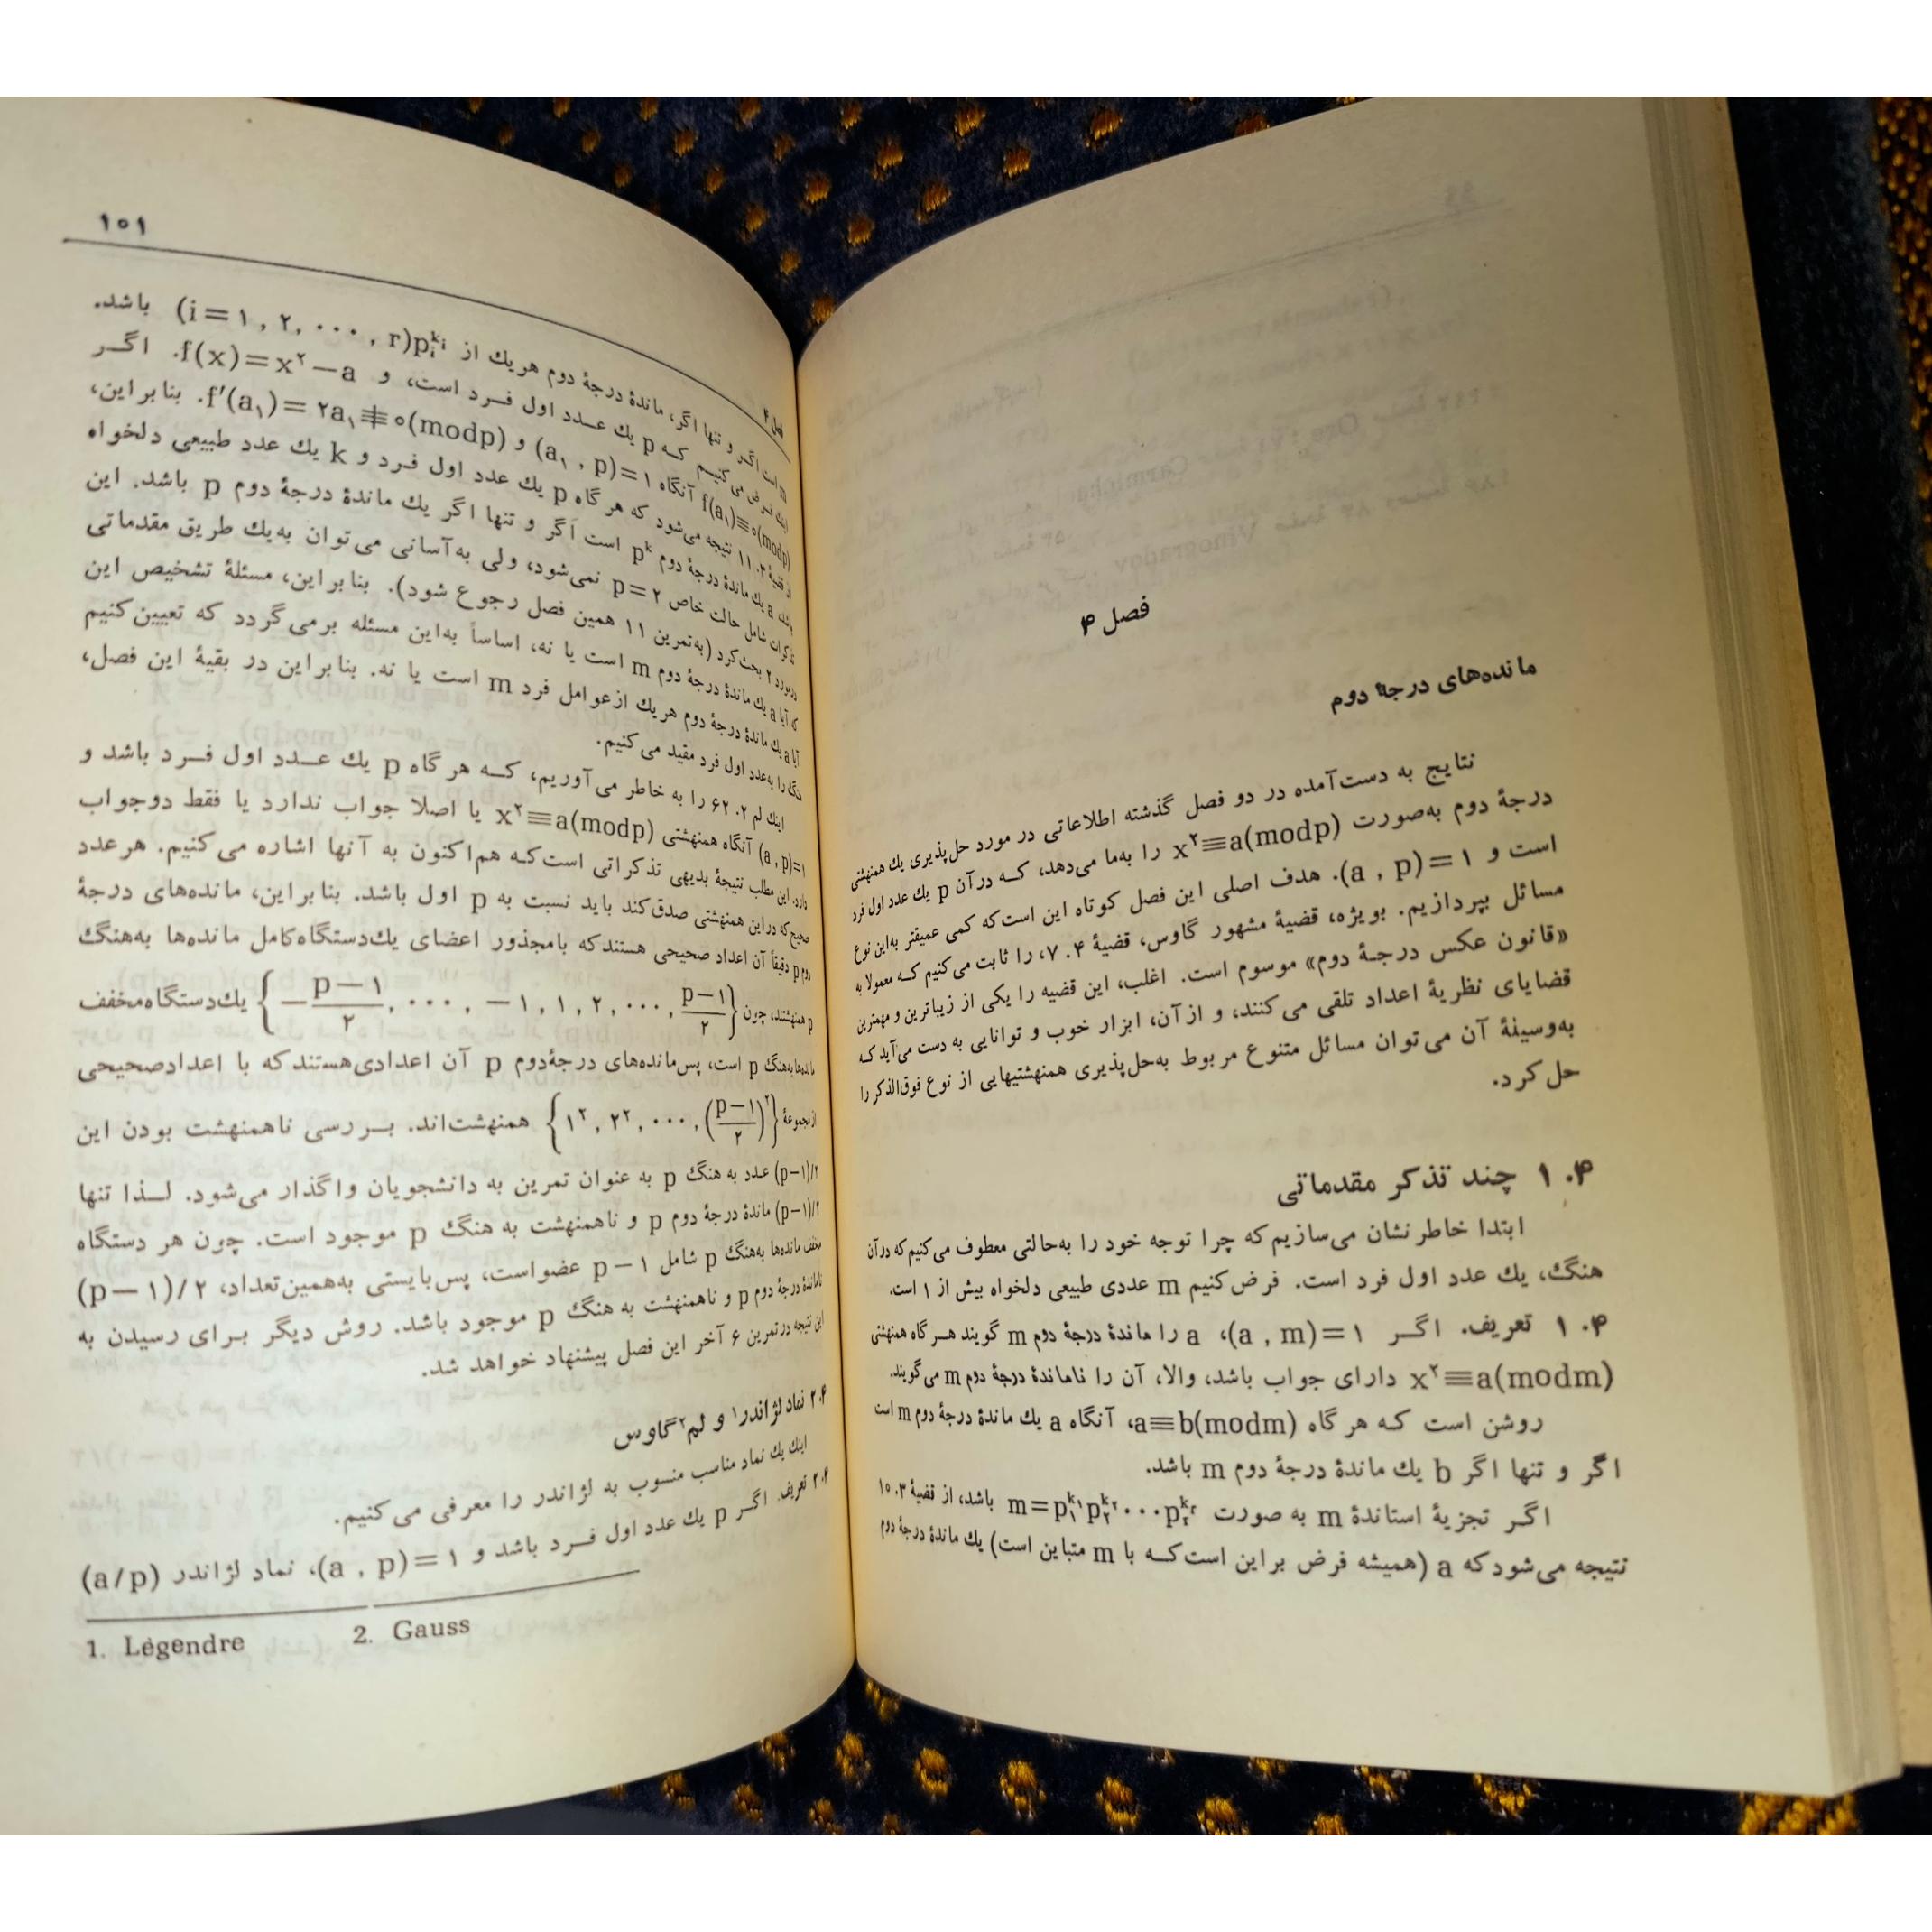 فصل ۴
مانده‌های درجهٔ دوم
نتایج به دست‌آمده در دو فصل گذشته اطلاعاتی در مورد حل‌پذیری یك همنهشتی
درجهٔ دوم به‌صورت x۲≡a(modp) را به‌ما می‌دهد، کـه درآن p یك عدد اول فرد
است و ۱=(a , p). هدف اصلی این فصل کوتاه این است‌که کمی عمیقتر به‌این نوع
مسائل بپردازیم. بویژه، قضیهٔ مشهور گاوس، قضیهٔ ۴. ۷، را ثابت می‌کنیم کـه معمولا به
«قانون عکس درجـهٔ دوم» موسوم است. اغلب، این قضیه را یکی از زیباترین و مهمترین
قضایای نظریهٔ اعداد تلقی می‌کنند، و ازآن، ابزار خوب و توانایی به دست می‌آید کـه
به‌وسیلهٔ آن می‌توان مسائل متنوع مربوط به‌حل‌پذیری همنهشتیهایی از نوع فوق‌الذکر را
حل کرد.
۴. ۱ چند تذکر مقدماتی
ابتدا خاطرنشان می‌سازیم‌که چرا توجه خود را به‌حالتی معطوف می‌کنیم‌که درآن
هنگ، یك عدد اول فرد است. فرض‌کنیم m عددی طبیعی دلخواه بیش از ۱ است.
۴. ۱ تعریف. اگـر ۱=(a , m)، a را ماندهٔ درجهٔ دوم m گویند هـرگاه همنهشتی
x۲≡a(modm) دارای جواب باشد، والا، آن را ناماندهٔ درجهٔ دوم m می‌گویند.
روشن است کـه هرگاه a≡b(modm)، آنگاه a یك ماندهٔ درجهٔ دوم m است
اگر و تنها اگر b یك ماندهٔ درجهٔ دوم m باشد.
اگـر تجزیهٔ استاندهٔ m به صورت m=p۱^k۱ p۲^k۲ ··· pr^kr باشد، از قضیهٔ ۳. ۱۰
نتیجه می‌شودکه a (همیشه فرض براین است‌کـه با m متباین است) یك ماندهٔ درجهٔ دوم
فصل ۴
۱۰۱
m است اگـر و تنها اگر، ماندهٔ درجهٔ دوم هریك از pi^ki (i=۱, ۲, ···, r) باشد.
اینك فـرض می‌کنیـم کـه p یك عـدد اول فـرد است، و f(x)=x۲−a. اگـر
f(a۱)≡۰(modp) آنگاه ۱=(a۱ , p) و f′(a۱)=۲a۱≢۰(modp). بنابراین،
از قضیهٔ ۳. ۱۱ نتیجه می‌شود که هرگاه p یك عدد اول فـرد و k یك عدد طبیعی دلخواه
باشد، a یك ماندهٔ درجهٔ دوم p^k است اگر و تنها اگر یك ماندهٔ درجهٔ دوم p باشد. این
تذکرات شامل حالت خاص p=۲ نمی‌شود، ولی به‌آسانی می‌توان به‌یك طریق مقدماتی
درمورد ۲ بحث‌کرد (به‌تمرین ۱۱ همین فصل رجوع شود). بنابراین، مسئلهٔ تشخیص این
که آیا a یك ماندهٔ درجهٔ دوم m است یا نه، اساساً به‌این مسئله برمی‌گردد که تعیین‌کنیم
آیا a یك ماندهٔ درجهٔ دوم هریك ازعوامل فرد m است یا نه. بنابراین در بقیهٔ این فصل،
هنگ را به‌عدد اول فرد مقید می‌کنیم.
اینك لم ۲. ۶۲ را به خاطر می‌آوریم، کـه هرگاه p یك عـدد اول فـرد باشد و
۱=(a , p) آنگاه همنهشتی x۲≡a(modp) یا اصلا جواب ندارد یا فقط دوجواب
دارد. این مطلب نتیجهٔ بدیهی تذکراتی است‌کـه هم‌اکنون به آنها اشاره می‌کنیم. هرعدد
صحیح‌که دراین همنهشتی صدق‌کند باید نسبت به p اول باشد. بنابراین، مانده‌های درجهٔ
دوم p دقیقاً آن اعداد صحیحی هستندکه بامجذور اعضای یك‌دستگاه‌کامل مانده‌ها به‌هنگ
p همنهشتند، چون {−(p−۱)/۲, ···, −۱, ۱, ۲, ···, (p−۱)/۲} یك‌دستگاه‌مخفف
مانده‌ها به‌هنگ p است، پس‌مانده‌های درجهٔ‌دوم p آن اعدادی‌هستندکه با اعدادصحیحی
از مجموعهٔ {۱۲, ۲۲, ···, ((p−۱)/۲)۲} همنهشت‌اند. بـررسی ناهمنهشت بودن این
(p−۱)/۲ عـدد به هنگ p به عنوان تمرین به دانشجویان واگذار می‌شود. لـذا تنها
(p−۱)/۲ ماندهٔ درجهٔ دوم p و ناهمنهشت به هنگ p موجود است. چون هر دستگاه
مخفف مانده‌ها به‌هنگ p شامل p−۱ عضواست، پس‌بایستی به‌همین‌تعداد، (p−۱)/۲
ناماندهٔ درجهٔ دوم p و ناهمنهشت به هنگ p موجود باشد. روش دیگر بـرای رسیدن به
این نتیجه درتمرین ۶ آخر این فصل پیشنهاد خواهد شد.
۲.۴ نماد لژاندر۱ و لم۲ گاوس
اینك یك نماد مناسب منسوب به لژاندر را معرفی می‌کنیم.
۲.۴ تعریف. اگـر p یك عدد اول فـرد باشد و ۱=(a , p)، نماد لژاندر (a/p)
1. Lègendre 2. Gauss